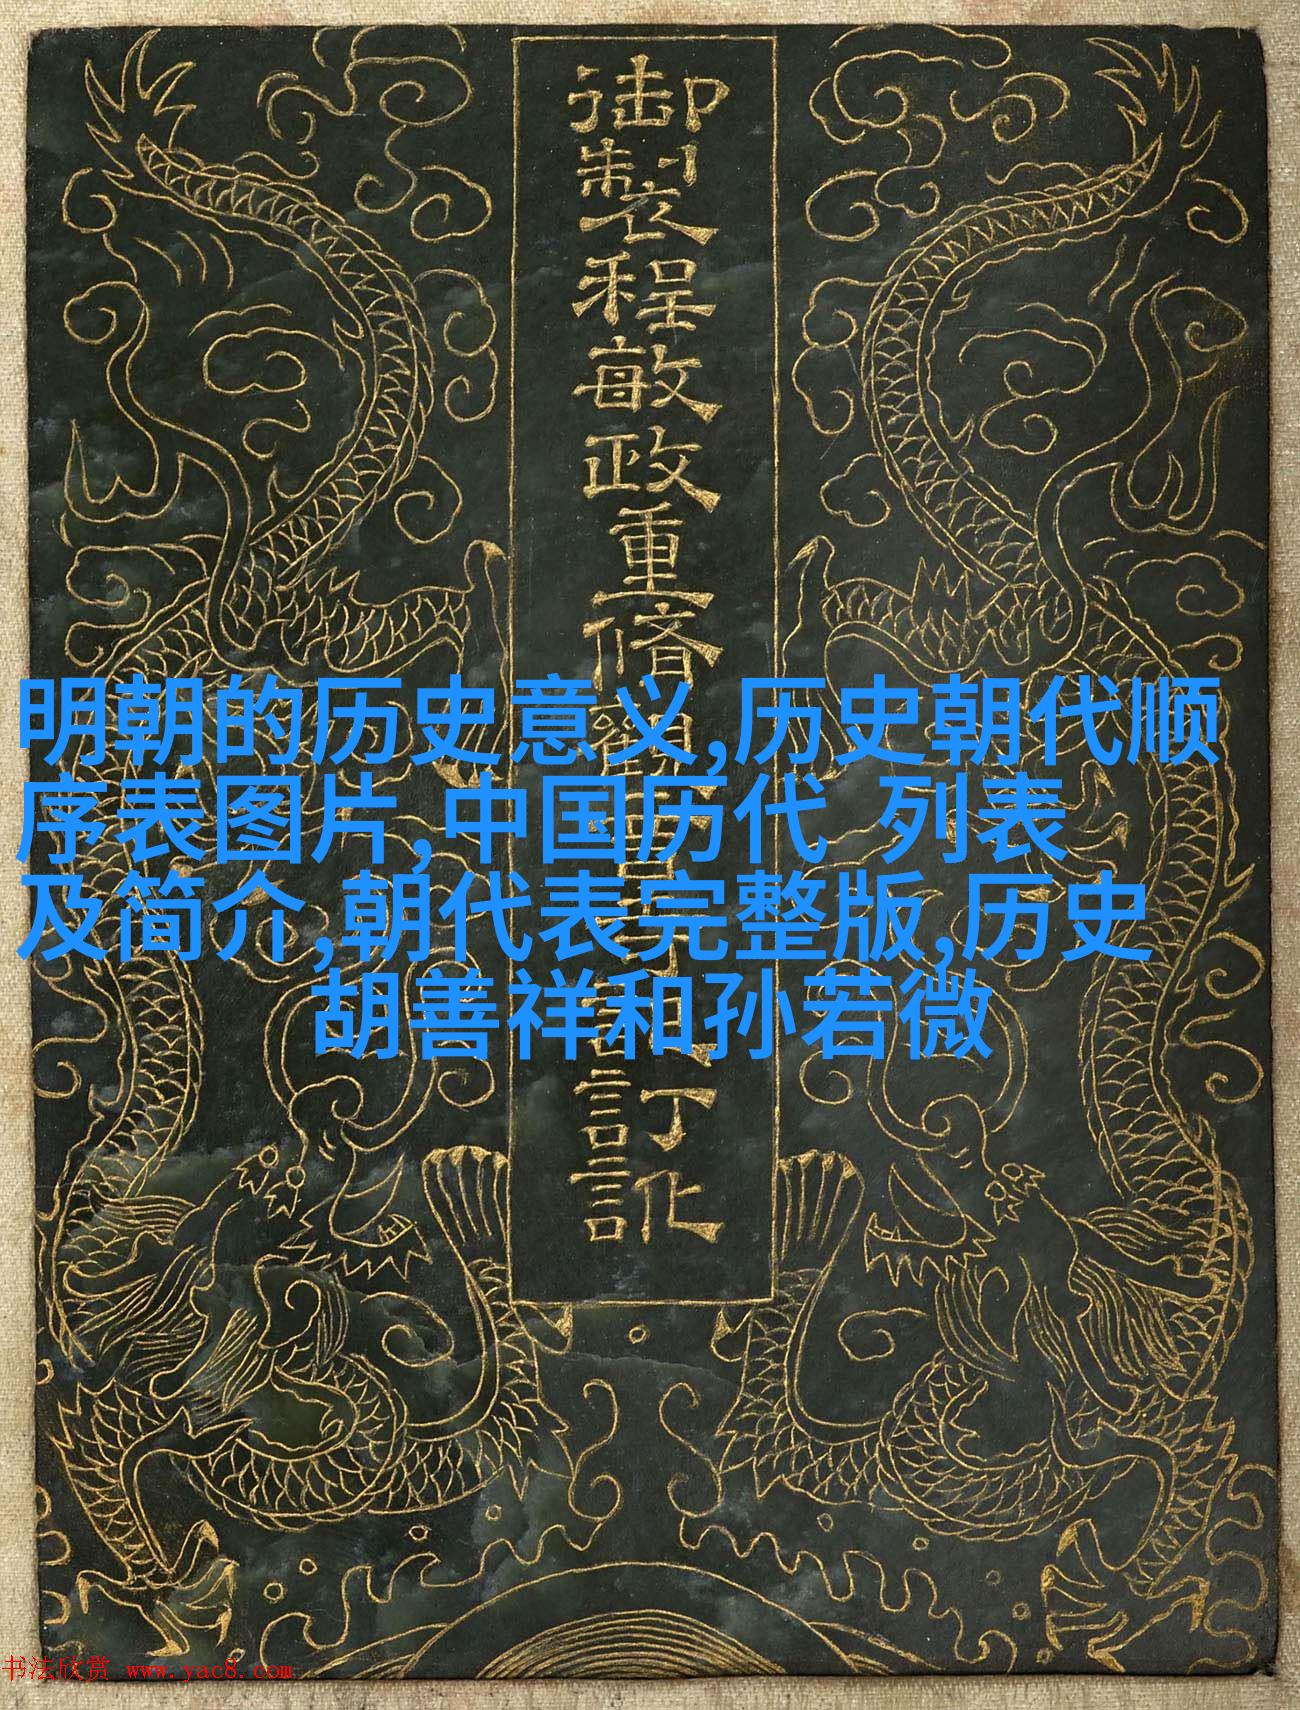 御製程敏政重脩訂訛
明朝的历史意义,历史朝代顺
序表图片,中国历代 列表
及简介,朝代表完整版,历史
胡善祥和孙若微
书法欣赏 www.yac8.com